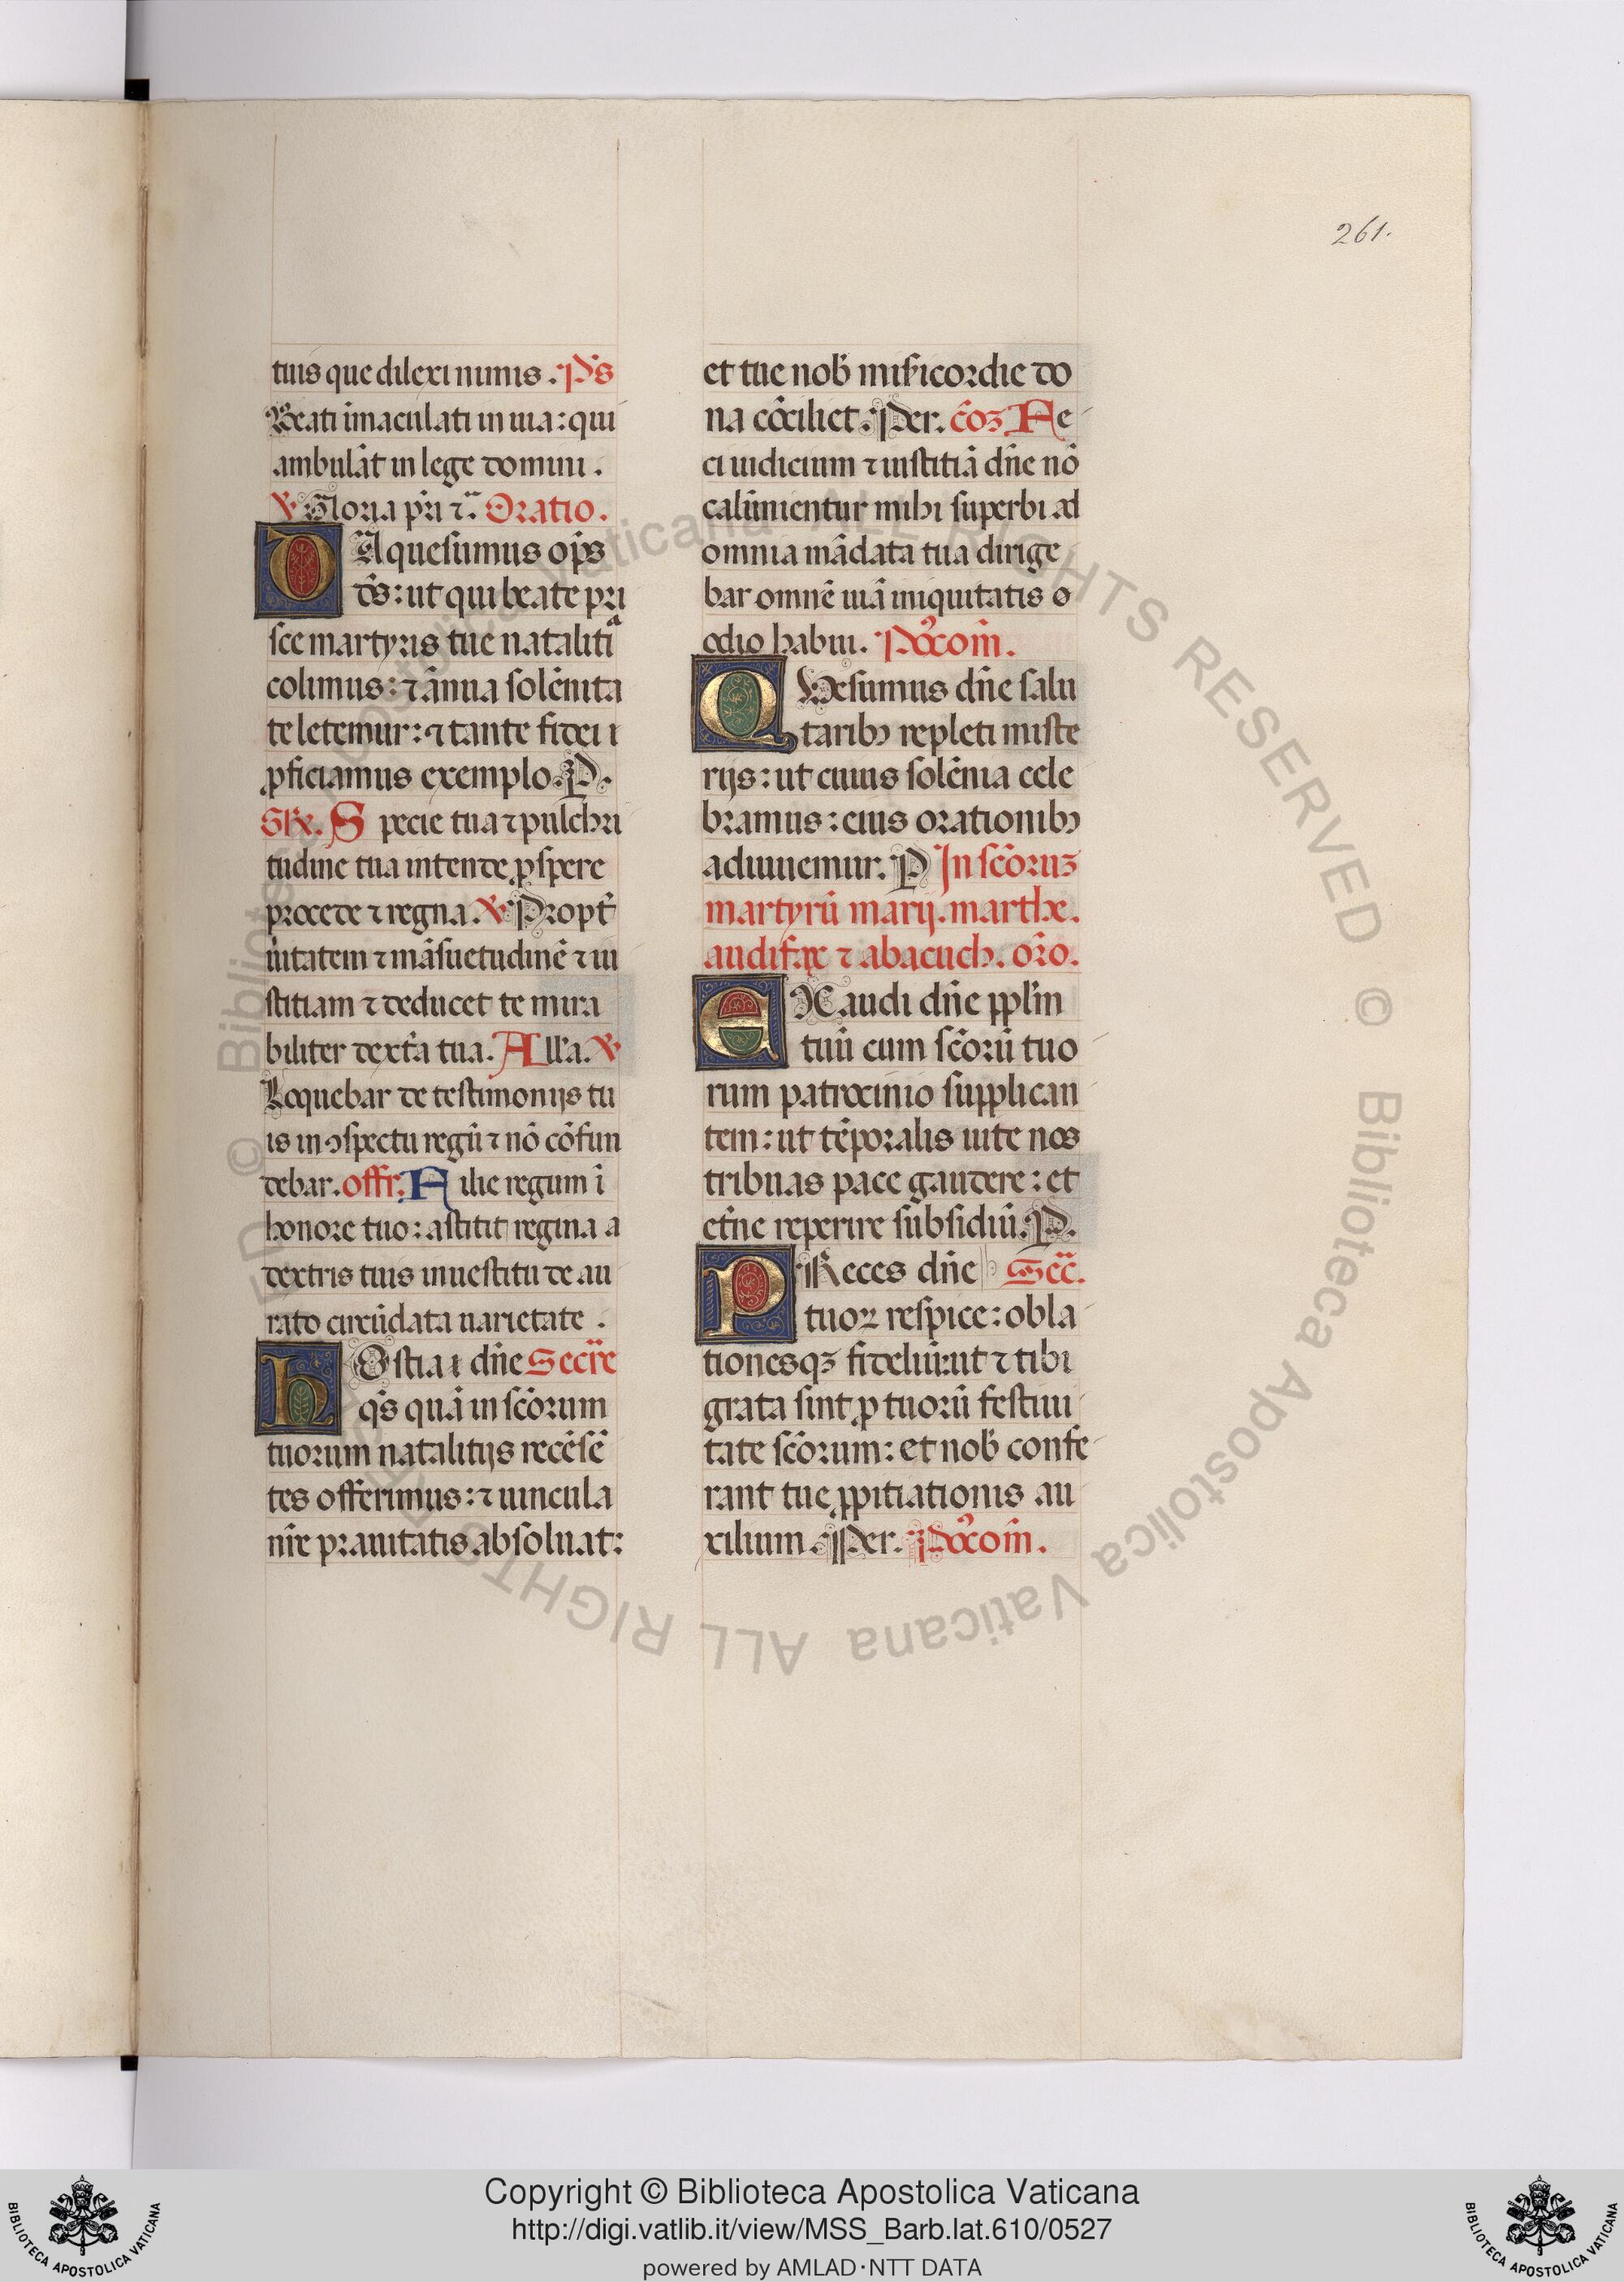 261.
tuis que dilexi nimis. Ps̄
Beati īmaculati in uia: qui
ambulāt in lege domini.
℣ Gloria pr̄i ⁊c̄. Oratio.
DA quesumus op̄s
ds̄: ut qui beate pri
sce martyris tue natalitia
colimus: ⁊ ānua solēnita
te letemur: ⁊ tante fidei i
ꝓficiamus exemplo. P.
Specie tua ⁊ pulchri
tudine tua intende ꝓspere
procede ⁊ regna. ℣ Propt̄
uitatem ⁊ māsuetudinē ⁊ iu
stitiam ⁊ deducet te mira
biliter dext̄a tua. All'a. ℣
Loquebar de testimonijs tu
is in ꝯspectu regū ⁊ nō cōfun
debar. offr. Filie regum ī
honore tuo: astitit regina a
dextris tuis in uestitu de au
rato circūdata uarietate.
HOstia i dn̄e Secr̄e
qs̄ quā in scōrum
tuorum natalitijs recēsē
tes offerimus: ⁊ uincula
nr̄e prauitatis absoluat:
et tue nob̄ mīsicordie do
na cōciliet. Per. cōꝫ Fe
ci iudicium ⁊ iustitiā dn̄e nō
calūnientur mihi superbi ad
omnia mādata tua dirige
bar omnē uiā iniquitatis o
odio habui. Pꝰcom̄.
QUesumus dn̄e salu
taribꝰ repleti miste
rijs: ut cuius solēnia cele
bramus: eius orationibꝰ
adiuuemur. P In scōruꝫ
martyrū marij. marthe.
audifax ⁊ abacuch. or̄o.
EXaudi dn̄e ppl̄m
tuū cum scōrū tuo
rum patrocinio supplican
tem: ut tēporalis uite nos
tribuas pace gaudere: et
et̄ne reperire subsidiū. P.
PReces dn̄e Sec̄.
tuoꝝ respice: obla
tionesqꝫ fideliū: ut ⁊ tibi
grata sint ꝓ tuorū festiui
tate scōrum: et nob̄ confe
rant tue ꝓpitiationis au
xilium. Per. Pꝰcom̄.
© Biblioteca Apostolica Vaticana ALL RIGHTS RESERVED © Biblioteca Apostolica Vaticana ALL RIGHTS RESERVED
BIBLIOTECA APOSTOLICA VATICANA
Copyright © Biblioteca Apostolica Vaticana
http://digi.vatlib.it/view/MSS_Barb.lat.610/0527
powered by AMLAD·NTT DATA
BIBLIOTECA APOSTOLICA VATICANA